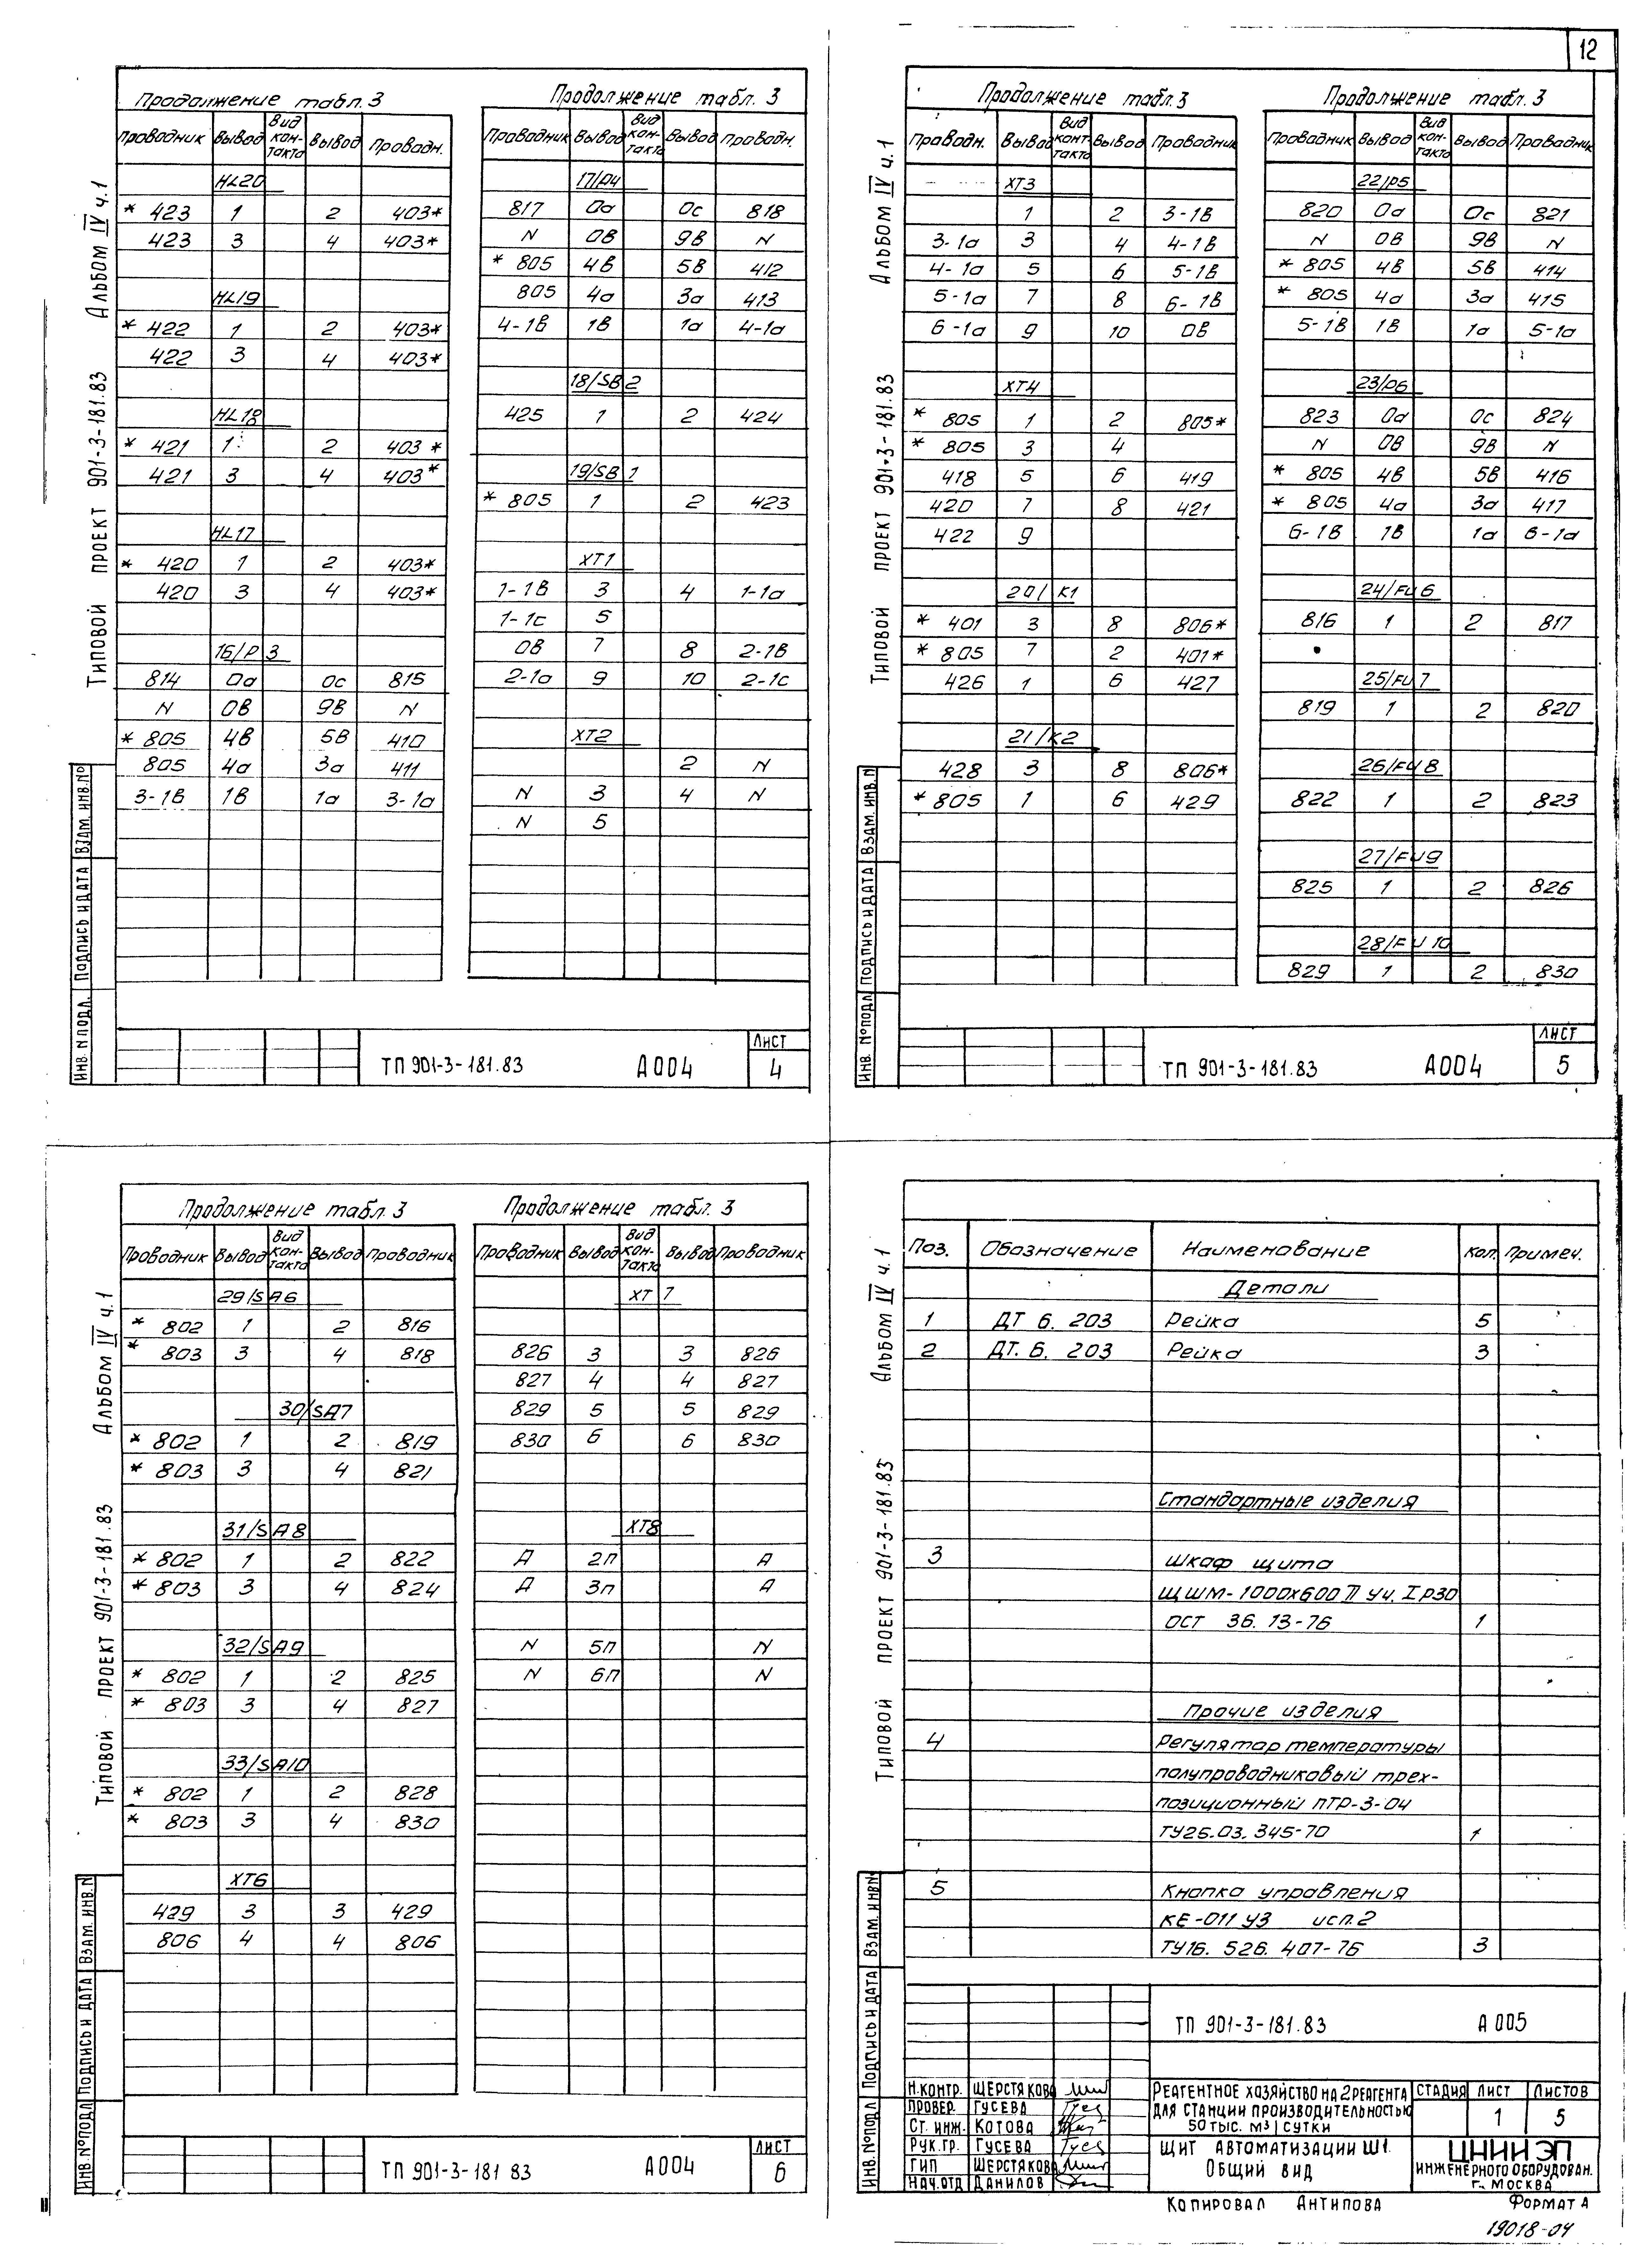 12
Альбом IV ч.1
Типовой проект 901-3-181.83
Продолжение табл. 3
Проводник Вывод Вид кон-такта Вывод Проводн.
HL20
* 423 1 2 403*
423 3 4 403*
HL19
* 422 1 2 403*
422 3 4 403*
HL18
* 421 1 2 403*
421 3 4 403*
HL17
* 420 1 2 403*
420 3 4 403*
16/Р3
814 0а 0с 815
N 0В 9В N
* 805 4В 5В 410
805 4а 3а 411
3-1В 1В 1а 3-1а
Продолжение табл. 3
Проводник Вывод Вид кон-такта Вывод Проводн.
17/Р4
817 0а 0с 818
N 0В 9В N
* 805 4В 5В 412
805 4а 3а 413
4-1В 1В 1а 4-1а
18/SB2
425 1 2 424
19/SB1
* 805 1 2 423
XT1
1-1В 3 4 1-1а
1-1с 5
0В 7 8 2-1В
2-1а 9 10 2-1с
XT2
2 N
N 3 4 N
N 5
Инв. N подл. Подпись и дата Взам. инв. №
ТП 901-3-181.83 А004
Лист
4
Альбом IV ч.1
Типовой проект 901-3-181.83
Продолжение табл. 3
Проводн. Вывод Вид конт-такта Вывод Проводник
XT3
1 2 3-1В
3-1а 3 4 4-1В
4-1а 5 6 5-1В
5-1а 7 8 6-1В
6-1а 9 10 0В
XT4
* 805 1 2 805*
* 805 3 4
418 5 6 419
420 7 8 421
422 9
20/K1
* 401 3 8 806*
* 805 7 2 401*
426 1 6 427
21/K2
428 3 8 806*
* 805 1 6 429
Продолжение табл. 3
Проводник Вывод Вид кон-такта Вывод Проводник
22/Р5
820 0а 0с 821
N 0В 9В N
* 805 4В 5В 414
* 805 4а 3а 415
5-1В 1В 1а 5-1а
23/Р6
823 0а 0с 824
N 0В 9В N
* 805 4В 5В 416
* 805 4а 3а 417
6-1В 1В 1а 6-1а
24/FU6
816 1 2 817
25/FU7
819 1 2 820
26/FU8
822 1 2 823
27/FU9
825 1 2 826
28/FU10
829 1 2 830
Инв. № подл Подпись и дата Взам. инв. N
ТП 901-3-181.83 А004
Лист
5
Альбом IV ч.1
Типовой проект 901-3-181.83
Продолжение табл. 3
Проводник Вывод Вид кон-такта Вывод Проводник
29/SA6
* 802 1 2 816
* 803 3 4 818
30/SA7
* 802 1 2 819
* 803 3 4 821
31/SA8
* 802 1 2 822
* 803 3 4 824
32/SA9
* 802 1 2 825
* 803 3 4 827
33/SA10
* 802 1 2 828
* 803 3 4 830
XT6
429 3 3 429
806 4 4 806
Продолжение табл. 3
Проводник Вывод Вид кон-такта Вывод Проводник
XT7
826 3 3 826
827 4 4 827
829 5 5 829
830 6 6 830
XT8
А 2П А
А 3П А
N 5П N
N 6П N
Инв. № подл Подпись и дата Взам. инв. N
ТП 901-3-181 83 А004
Лист
6
Альбом IV ч.1
Типовой проект 901-3-181.83
Поз. Обозначение Наименование Кол. Примеч.
Детали
1 ДТ 6. 203 Рейка 5
2 ДТ. 6. 203 Рейка 3
Стандартные изделия
3 Шкаф щита
ЩШМ-1000х600 П Уч. I Р30
ОСТ 36. 13-76 1
Прочие изделия
4 Регулятор температуры
полупроводниковый трех-
позиционный ПТР-3-04
ТУ25.03. 345-70 1
5 Кнопка управления
КЕ-011 У3 исп. 2
ТУ16. 526. 407-76 3
Инв. № подл Подпись и дата Взам. инв N
ТП 901-3-181.83 А 005
Н.контр. Шерстякова
Провер. Гусева
Ст. инж. Котова
Рук.гр. Гусева
ГИП Шерстякова
Нач.отд Данилов
Реагентное хозяйство на 2 реагента
для станции производительностью
50 тыс. м3/сутки
Щит автоматизации Щ1.
Общий вид
Стадия Лист Листов
1 5
ЦНИИЭП
инженерного оборудован.
г. Москва
Копировал Антипова Формат А
19018-04